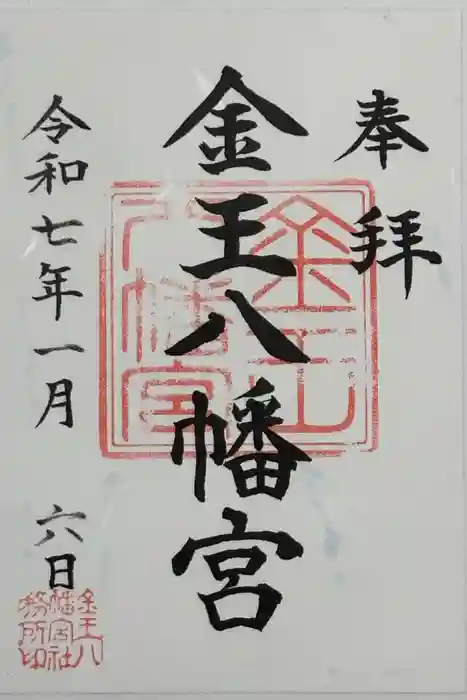 奉拝
金王八幡宮
令和七年一月六日
金王八幡宮
金王八幡宮社務所印